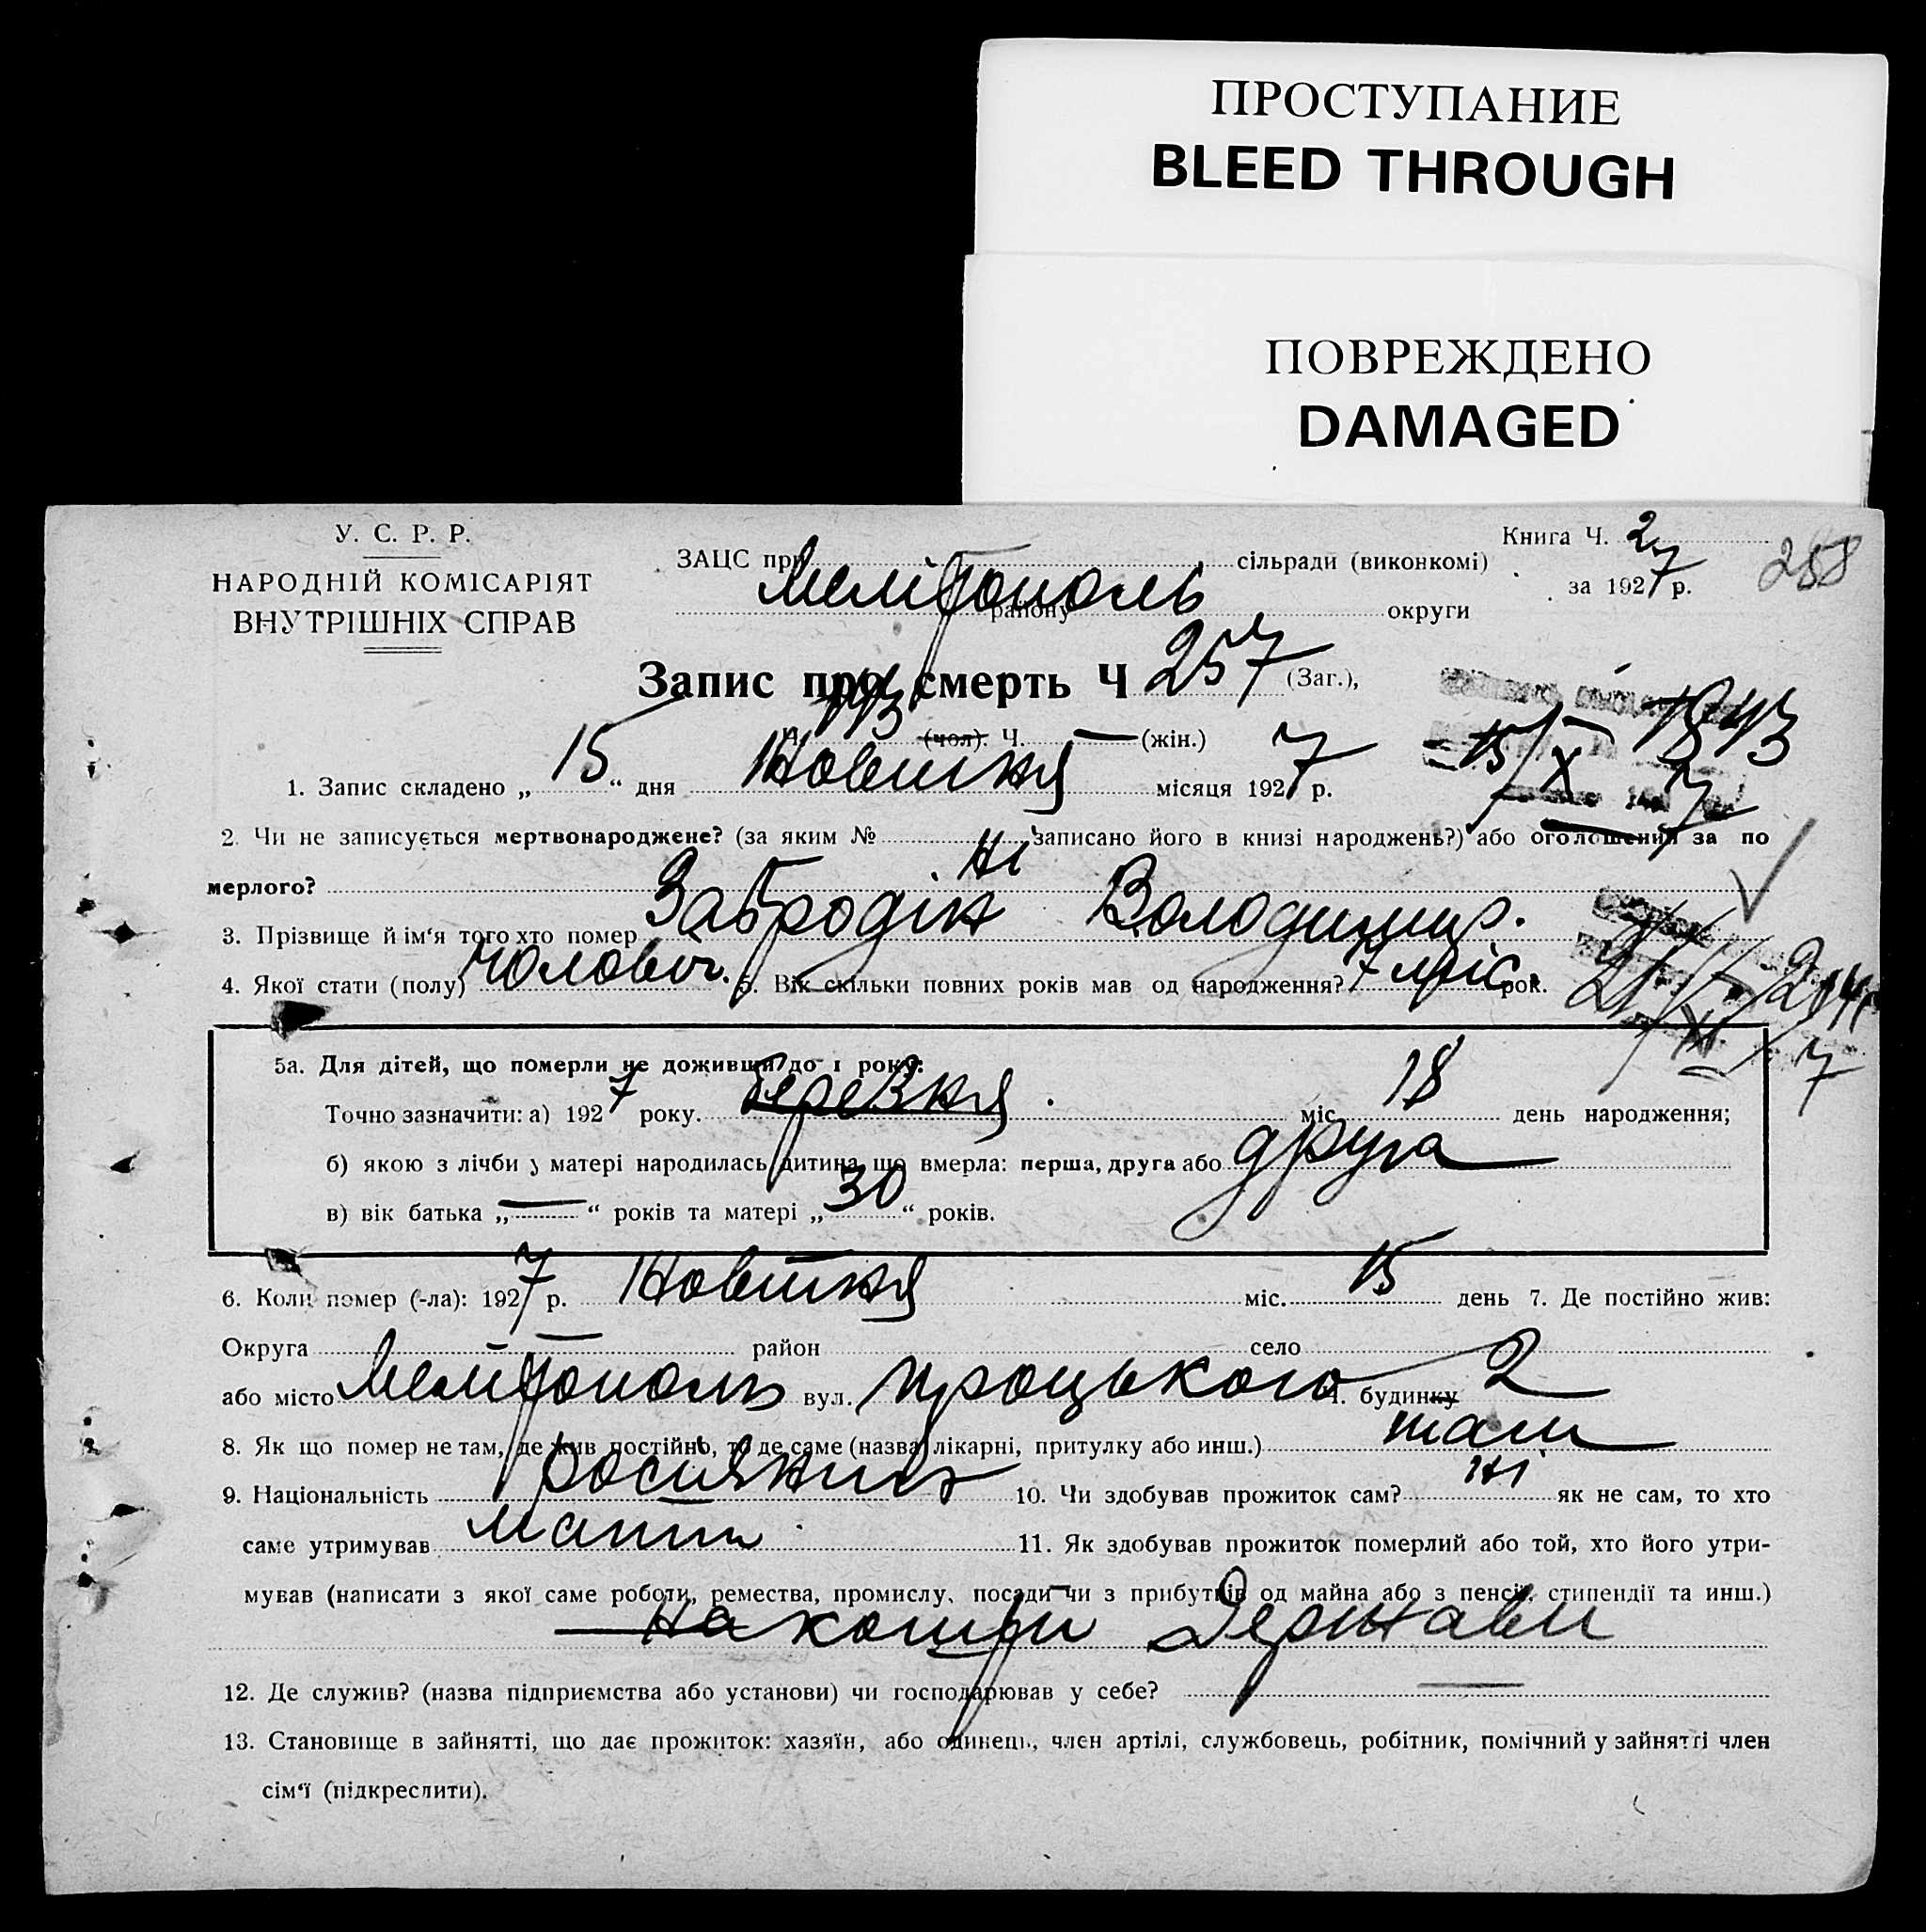 ПРОСТУПАНИЕ
BLEED THROUGH
ПОВРЕЖДЕНО
DAMAGED
У. С. Р. Р.
НАРОДНІЙ КОМІСАРІЯТ
ВНУТРІШНІХ СПРАВ
Книга Ч. 2
за 1927 р.
258
ЗАЦС при сільради (виконкомі)
Мелітополь
району округи
Запис про смерть Ч 257 (Заг.),
Ч. 143 (чол). Ч. — (жін.)
15/X 1843
7
1. Запис складено „ 15 “ дня Новтня місяця 1927 р.
2. Чи не записується мертвонароджене? (за яким № записано його в книзі народжень?) або оголошений за по
мерлого? Ні
3. Прізвище й ім‘я того хто помер Забродін Володимир.
4. Якої стати (полу) чоловіч. 5. Вік скільки повних років мав од народження? 7 міс. рок.
21/XI
7
5а. Для дітей, що померли не доживши до 1 року:
Точно зазначити: а) 1927 року. березня міс. 18 день народження;
б) якою з лічби у матері народилась дитина що вмерла: перша, друга або друга
в) вік батька „ — “ років та матері „ 30 “ років.
6. Коли помер (-ла): 1927 р. Новтня міс. 15 день 7. Де постійно жив:
Округа — район село
або місто Мелітополь вул. Троцького Ч. будинку 2
8. Як що помер не там, де жив постійно, то де саме (назва лікарні, притулку або инш.) там
9. Національність росіянин 10. Чи здобував прожиток сам? Ні як не сам, то хто
саме утримував мати 11. Як здобував прожиток померлий або той, хто його утри-
мував (написати з якої саме роботи, ремества, промислу, посади чи з прибутків од майна або з пенсії, стипендії та инш.)
на кошти держави
12. Де служив? (назва підприємства або установи) чи господарював у себе? —
13. Становище в зайнятті, що дає прожиток: хазяїн, або одинець, член артілі, службовець, робітник, помічний у зайнятті член
сім‘ї (підкреслити).